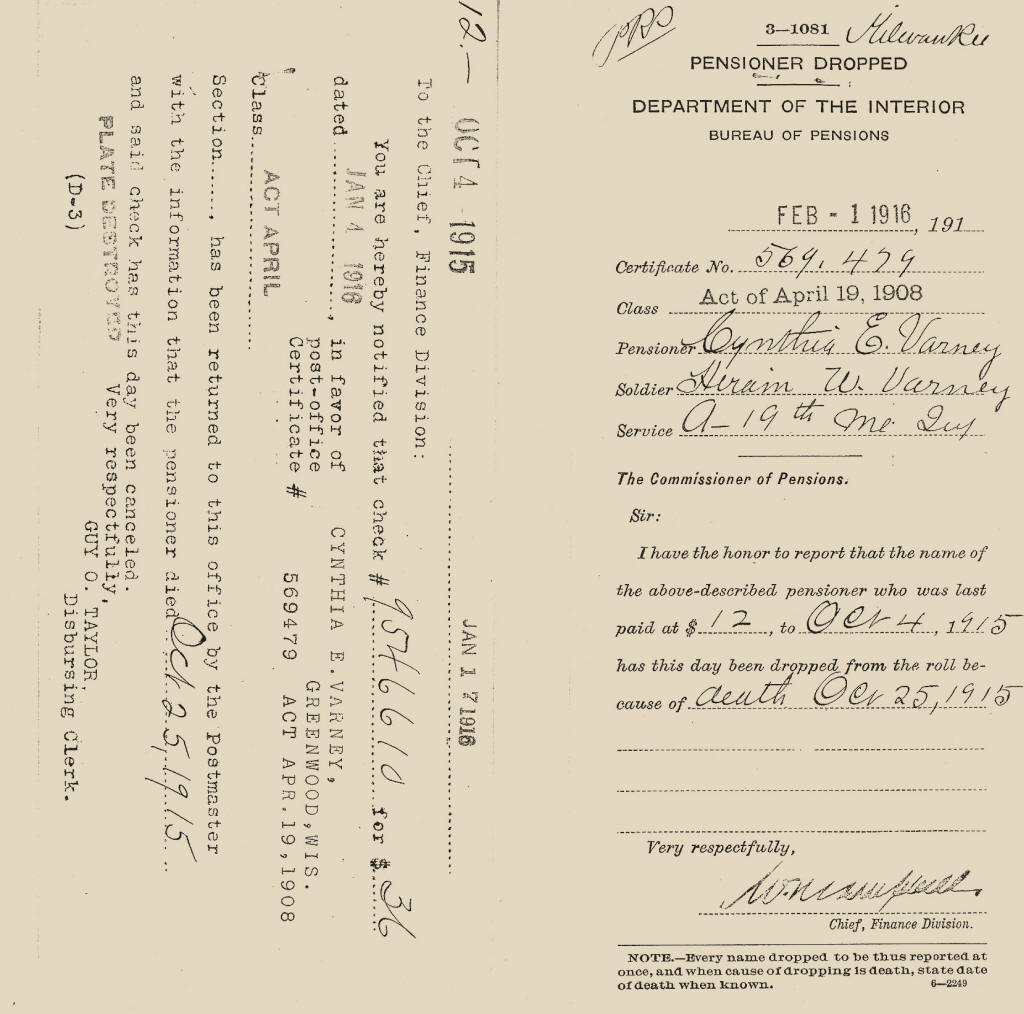 12.—
OCT 4 1915
JAN 17 1916
To the Chief, Finance Division:
You are hereby notified that check # 9546610 for $ 36
dated JAN 4 1916, in favor of CYNTHIA E.VARNEY,
post-office GREENWOOD,WIS.
Class ACT APRIL Certificate # 569479 ACT APR.19,1908
Section......, has been returned to this office by the Postmaster
with the information that the pensioner died Oct 25, 1915
and said check has this day been canceled.
PLATE DESTROYED Very respectfully,
GUY O. TAYLOR,
(D-3) Disbursing Clerk.
3—1081 Milwaukee
PENSIONER DROPPED
DEPARTMENT OF THE INTERIOR
BUREAU OF PENSIONS
FEB - 1 1916, 191
Certificate No. 569,479
Class Act of April 19, 1908
Pensioner Cynthia E. Varney
Soldier Hiram W. Varney
Service A- 19th Me. Inf
The Commissioner of Pensions.
Sir:
I have the honor to report that the name of
the above-described pensioner who was last
paid at $ 12, to Oct 4, 1915
has this day been dropped from the roll be-
cause of death Oct 25, 1915
Very respectfully,
Chief, Finance Division.
NOTE.—Every name dropped to be thus reported at
once, and when cause of dropping is death, state date
of death when known. 6—2249